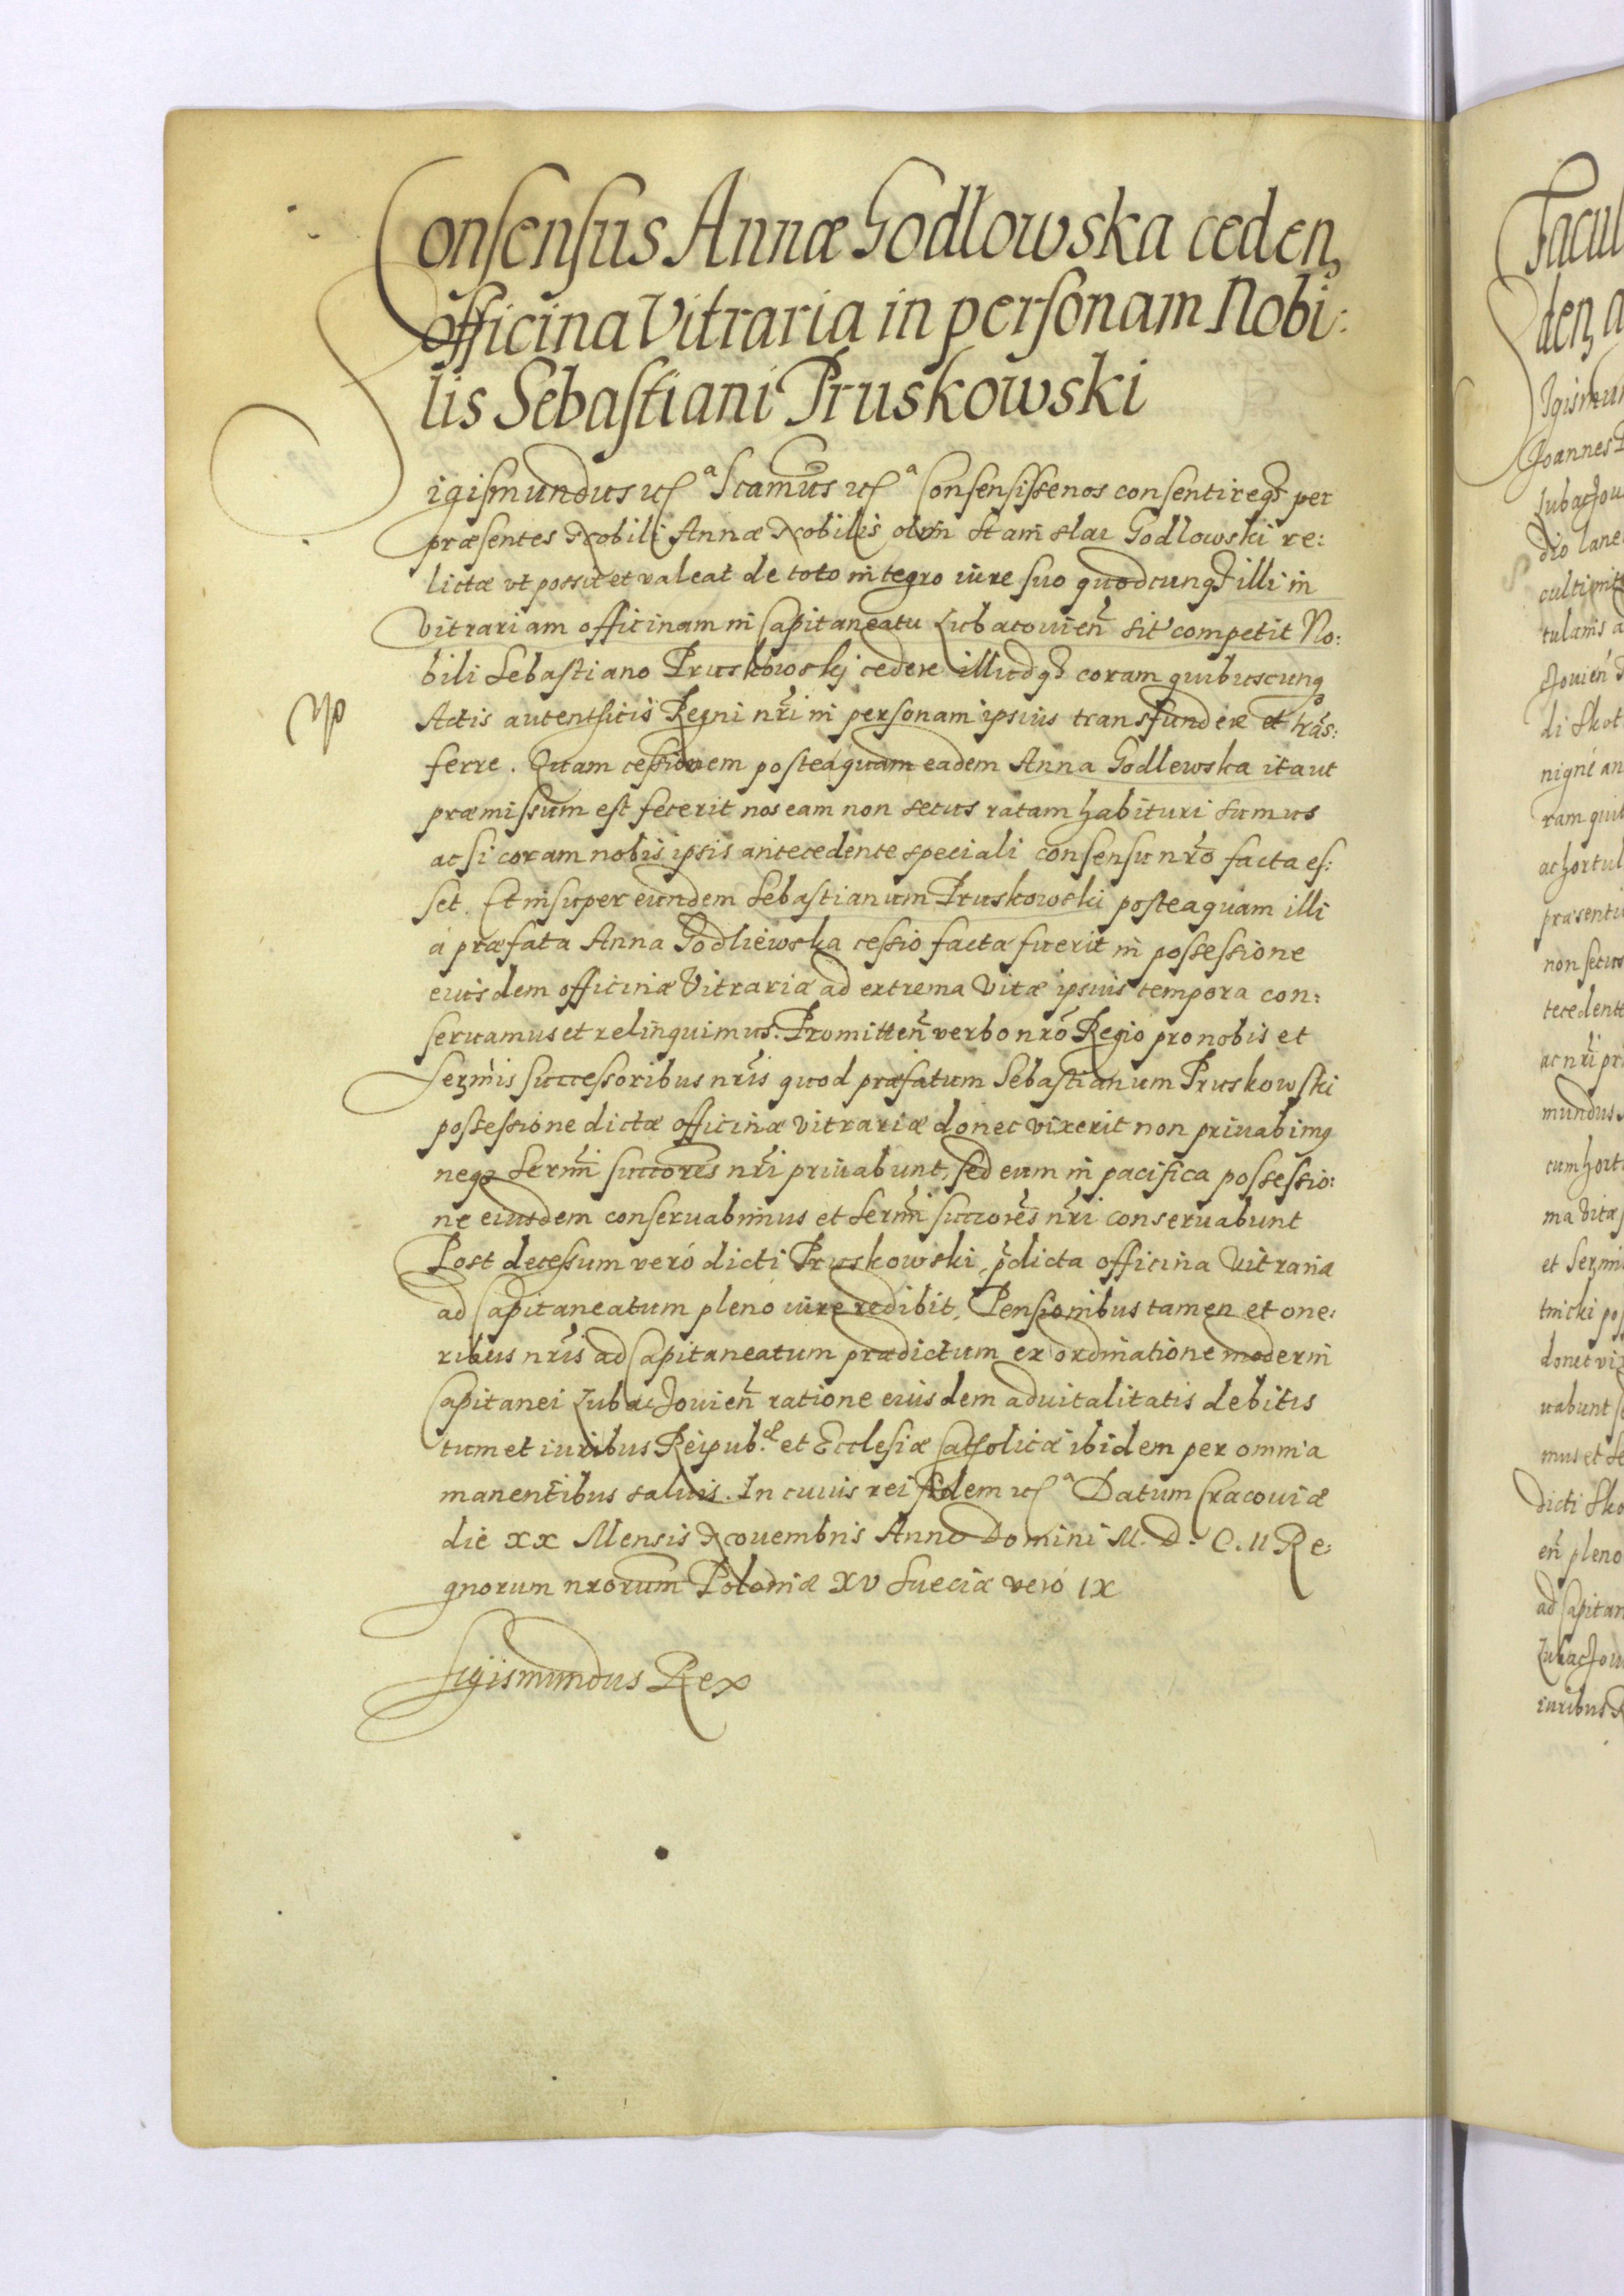 Consensus Annæ Godlowska ceden,
officina Vitraria in personam Nobi:
lis Sebastiani Pruskowski
Sigismundus etc.ª Sigcamus etc.ª Consensisse nos consentireqꝫ per
præsentes Nobili Annæ Nobilis olim Stanislai Godlowski re:
lictæ vt possit et valeat de toto integro iure suo quodcunqꝫ illi in
vitrariam officinam in Capitaneatu Lubacouien̄ sit' competit No:
bili Sebastiano Pruskowskj cedere illudqꝫ coram quibuscunqꝫ
Actis autenthicis Regni nr̄i in personam ipsius transfundere et trās:
ferre. Quam cessionem posteaquam eadem Anna Godlewska ita ut
præmissum est fecerit nos eam non secus ratam habituri sumus
ac si coram nobis ipsis antecedente speciali consensu nr̄o facta es:
set. Et insuper eundem Sebastianum Pruskowski posteaquam illi
á præfata Anna Godliewska cessio facta fuerit in possessione
eiusdem officinæ Vitrariæ ad extrema Vitæ ipsius tempora con:
seruamus et relinquimus. Promitten̄ verbo nr̄o Regio pro nobis et
Serm̄is successoribus nr̄is quod præfatum Sebastianum Pruskowski
possessione dictæ officinæ vitrariæ donec vixerit non priuabimꝰ
neqꝫ Serm̄i succores̄ nr̄i priuabunt, sed eum in pacifica possessio:
ne eiusdem conseruabimus et Serm̄i succores̄ nr̄i conseruabunt
Post decessum veró dicti Pruskowski, p̄dicta officina Vitraria
ad Capitaneatum pleno iure redibit, Pensionibus tamen et one:
ribus nr̄is ad Capitaneatum prædictum ex ordinatione moderni
Capitanei Lubachouien̄ ratione eiusdem aduitalitatis debitis
tum et iuribus Reipub.æ et Ecclesiæ Catholicæ ibidem per omnia
manentibus saluis. In cuius rei fidem etc.ª Datum Cracouiæ
die XX Mensis Nouembris Anno Domini M. D. C. II Re:
gnorum nrorum Poloniæ XV Sueciæ veró IX
Sigismundus Rex